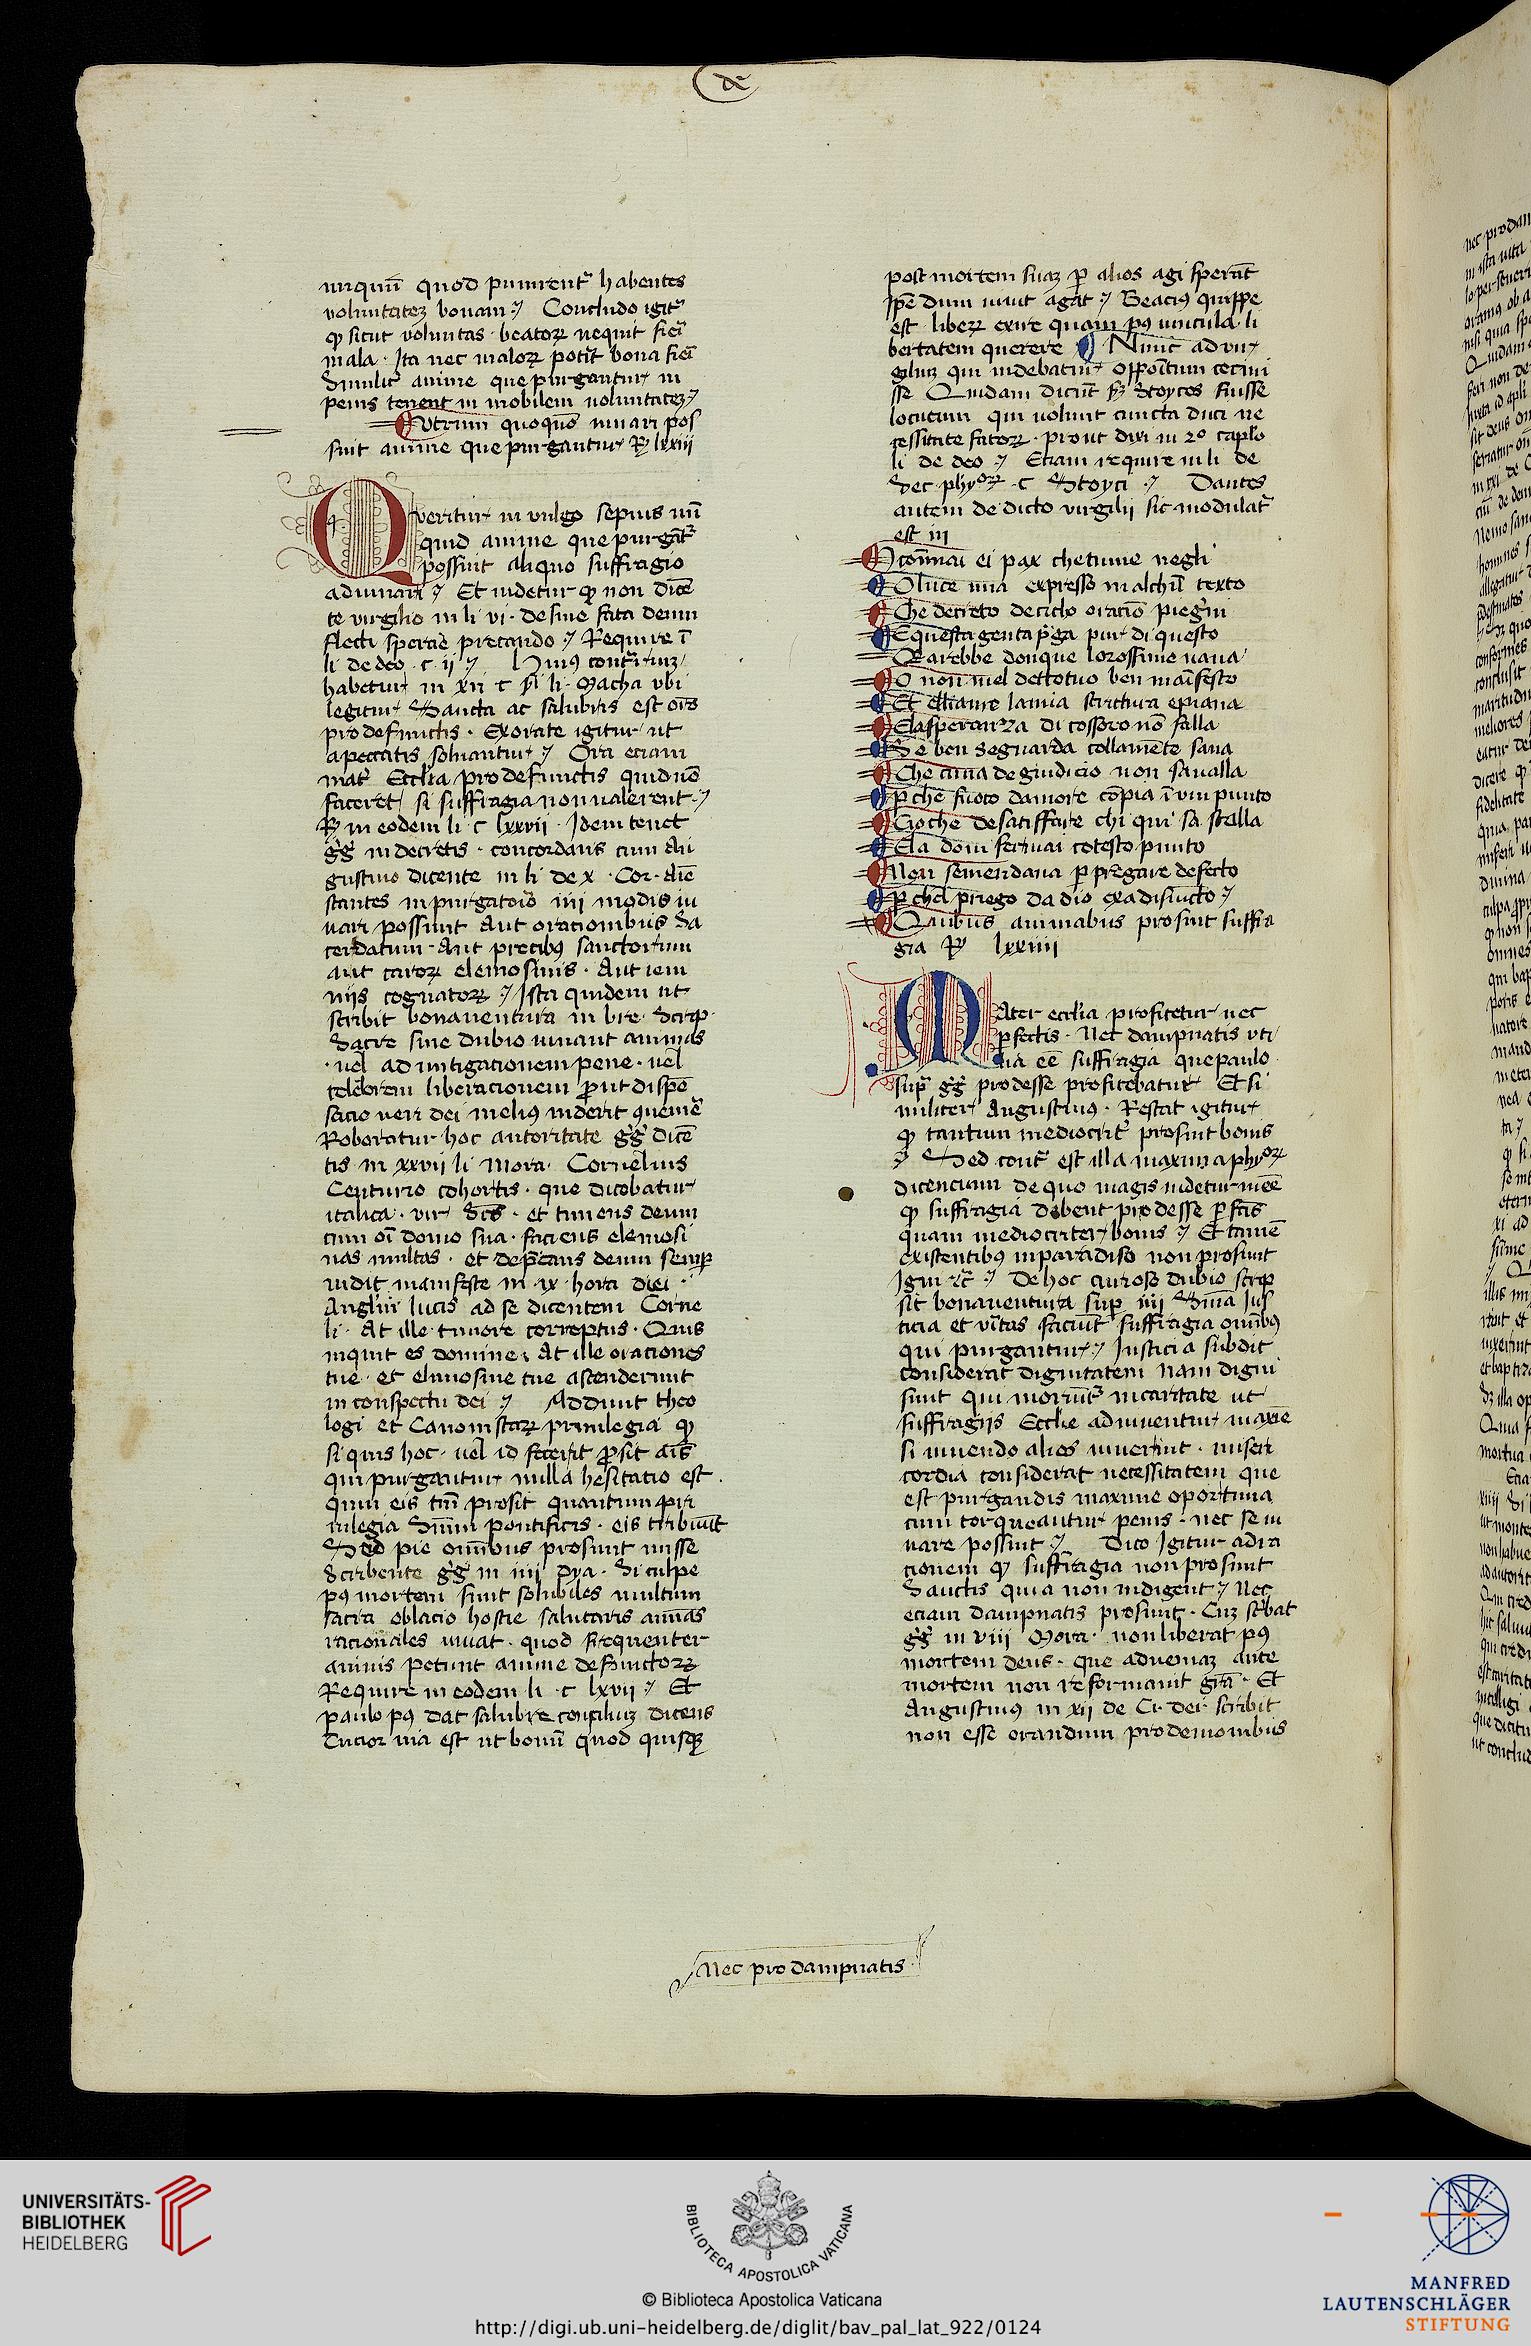 de
nuquid quod punirent᷑ habentes
voluntateʒ bonam ⁊ Concludo igit᷑
ꝙ sicut voluntas · beatoꝝ nequit fieri
mala · Ita nec maloꝝ poterit bona fieri
Similit᷑ anime que purgantur in
penis tenent in mobilem uoluntateʒ ⁊
Vtrum quoquo iuuari pos
sint anime que purgantur Rͣ lxxiii
Queritur in vulgo sepius nū
quid anime que purgāt᷑
possint aliquo suffragio
adiuuari ⁊ Et uidetur ꝙ non dicē
te virgilio in li vi · desine fata deum
flecti sperare precando ⁊ Require ī
li de deo · c · ij ⁊ Huius contrariuʒ
habetur in xii c pi li · Macha vbi
legitur Sancta ac salubris est orō
pro defunctis · Exorate igitur ut
a peccatis soluantur ⁊ Ora eciam
mat᷑ Ecclīa pro defunctis quid nō
faceret si suffragia non ualerent ⁊
Rͣ in eodem li c lxxvii · Idem tenet
gg̃ in decretis · concordans cum Au
gustino dicente in li de x · Cor · aīe
stantes in purgatorio iiii modis iu
uari possunt Aut oracionibus Sa
cerdatum · Aut precibꝰ sanctorum
aut caroꝝ elemosinis · Aut ieiu
niis cognatoꝝ ⁊ Ista quidem ut
scribit bonauentura in bre · Scrip ·
Sacre sine dubio iuuant animas
· uel ad mitigacionem pene · uel
celebrem liberacionem ꝓut dispē
sacio ueri dei meliꝰ uiderit quemē
Roboratur hoc autoritate gg̃ dicē
tis in xxvii li Mora · Cornelius
Centurio cohortis · que dicebatur
italica · vir Scs · et timens deum
cum oī domo sua · faciens elemosi
nas multas · et dep̄cans deum semꝑ
uidit manifeste in · ix · hora diei ·
Angl̄m lucis ad se dicentem Corne
li · At ille timore correptus · Quis
inquit es domine · At ille oraciones
tue · et elimosine tue ascenderunt
in conspectu dei ⁊ Addunt theo
logi et Canonistaꝝ priuilegia ꝙ
si quis hoc · uel id fecerit ꝓsit aīs
qui purgantur nulla hesitatio est ·
quin eis tm̄ prosit quantum pri
uilegia Summi pontificis · eis tribuūt
Sed pie omībus prosunt misse
Scribente gg̃ in iiii Dya · Si culpe
pꝰ mortem sint solubiles multum
sacra oblacio hostie salutaris animas
racionales iuuat · quod frequenter
a uiuis petunt anime defunctoꝝ
Require in eodem li · c lxvii ⁊ Et
paulo pꝰ dat salubre consiliuʒ dicens
Tucior uia est ut bonū quod quisqʒ
post mortem suaʒ ꝑ alios agi sperāt
ipse dum uiuit agat ⁊ Beaciꝰ quippe
est · libeꝝ exire quam pꝰ uincula · li
bertatem querere Nunc ad vir
giliuʒ qui uidebatur oppoītum cecini
sse Quidam dicūt fʒ Stoyces fuisse
locutum qui uolunt cuncta duci ne
cessitate fatoꝝ · prout dixi in 2º caplo
li de deo ⁊ Eciam require in li de
Sec · phyoꝝ · c Stoyci ⁊ Dantes
autem de dicto virgilii sic modulat᷑
est iii
Chetume neghi
O luce mia expresso in alchū texto
Che decreto de cielo oratiō piegin
E questa genta ꝑga pur di questo
Sarebbe donque lor o ssime uana
O non mel detto tuo ben māifesto
E la sperança di cossoro nō falla
Se ben se guarda colla mēte sana
Che cima de giudicio non sa ualla
Perche fuoco damore cōpia ī vm punto
Cio che de satisffare chi qui sa stalla
E la dou fermai cotesto punto
Non semendaua ꝑ pregare defecto
Perchel priego da dio era disiūcto ⁊
Quibus animabus prosint suffra
gia Rͣ lxxiiii
Mater ecclīa profitetur nec
ꝑfectis · Nec dampnatis vti
lia eē suffragia que paulo
sup᷑ gg̃ prodesse profitebatur Et si
militer Augustinus · Restat igitur
ꝙ tantum mediocrit᷑ prosint bonis
⁊ Sed cont᷑ est illa maxima phyoꝝ
dicencium de quo magis uidetur inēe
ꝙ suffragia debent prodesse ꝑfcīs
quam mediocriter bonis ⁊ Et tamē
existentibꝰ in paradiso non prosunt
Igitur ⁊c̄ ⁊ De hoc curioso dubio scrip
sit bonauentura sup iiii Sniā Jus
ticia et vītas faciūt suffragia omībꝰ
qui purgantur ⁊ Iusticia subdit
considerat dignitatem nam digni
sunt qui moriūt᷑ in caritate ut
suffragiis Ecclīe adiuuentur maxīe
si uiuendo alios iuuerint · miseri
cordia considerat necessitatem que
est purgandis maxime oportuna
cum torqueantur penis · nec se iu
uare possunt ⁊ Dico Igitur ad ra
cionem ꝙ suffragia non prosunt
Sanctis quia non indigent ⁊ Nec
eciam dampnatis prosunt · Cuʒ sc̄bat
gg̃ in viii Mora · non liberat pꝰ
mortem deus · que ad ueniaʒ ante
mortem non reformauit grā · Et
Augustinus in xii de Ci · dei scribit
non esse orandum pro demonibus
Nec pro dampnatis
UNIVERSITÄTS-
BIBLIOTHEK
HEIDELBERG
BIBLIOTECA APOSTOLICA VATICANA
© Biblioteca Apostolica Vaticana
http://digi.ub.uni-heidelberg.de/diglit/bav_pal_lat_922/0124
MANFRED
LAUTENSCHLÄGER
STIFTUNG